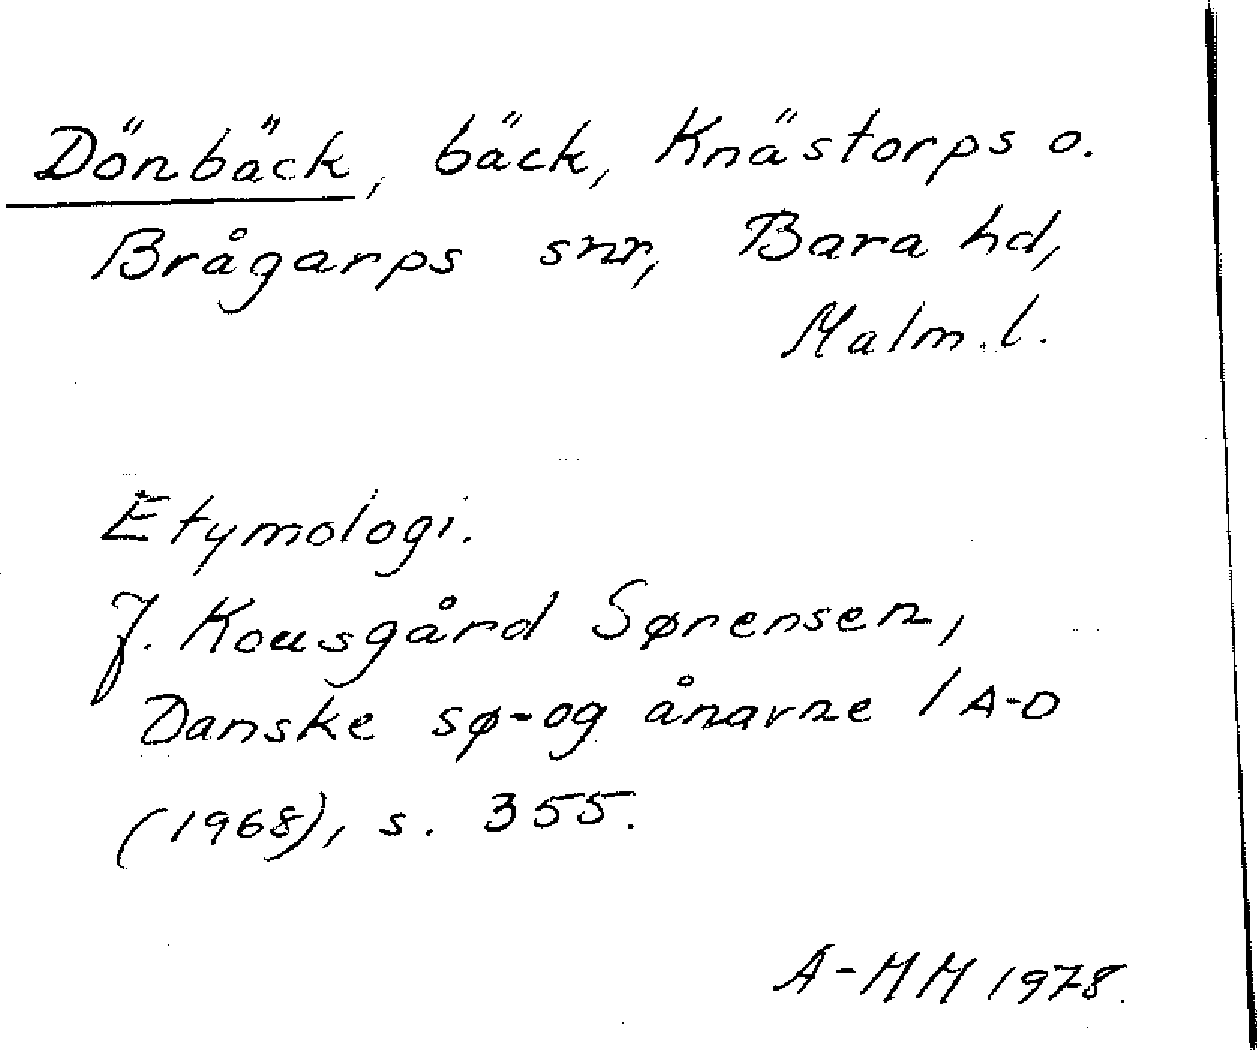 Dönbäck, bäck, Knästorps o.
Brågarps snr, Bara hd,
Malm. l.
Etymologi.
J. Kousgård Sørensen,
Danske sø- og ånavne 1 A-D
(1968), s. 355.
A-MM 1978.